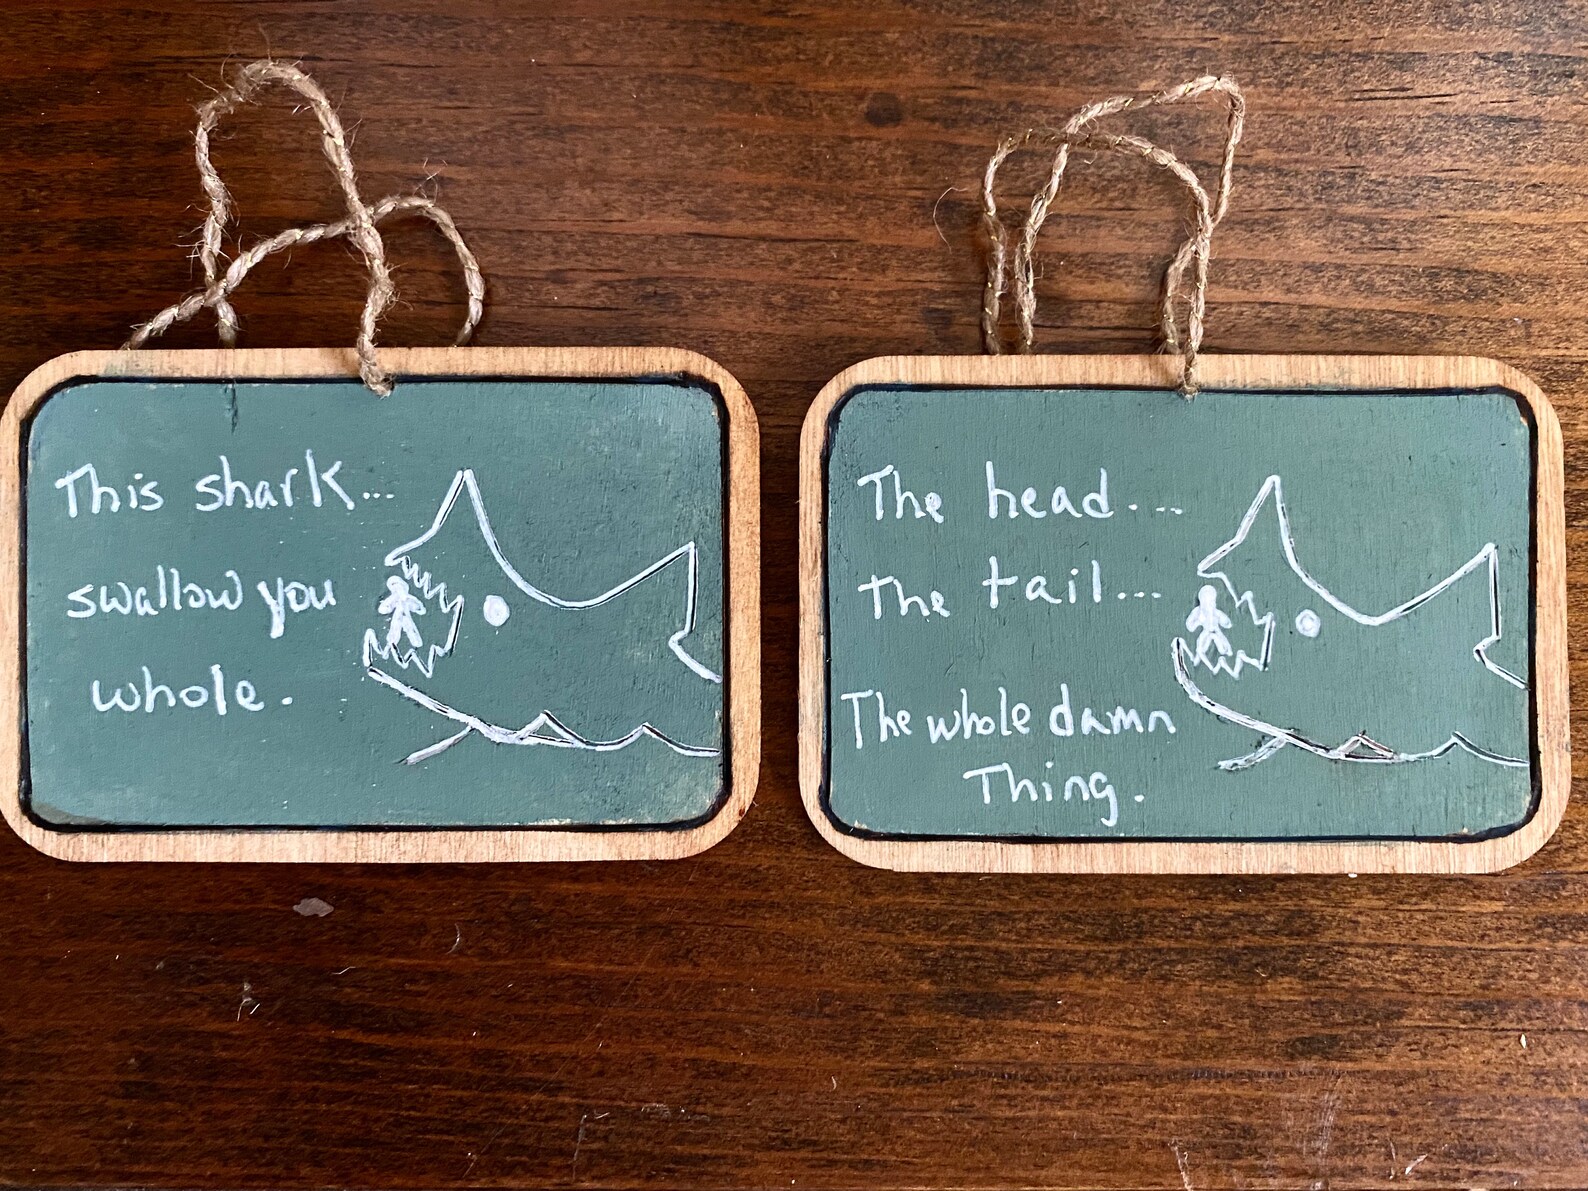 This shark...
swallow you
whole.
The head....
the tail...
The whole damn
Thing.